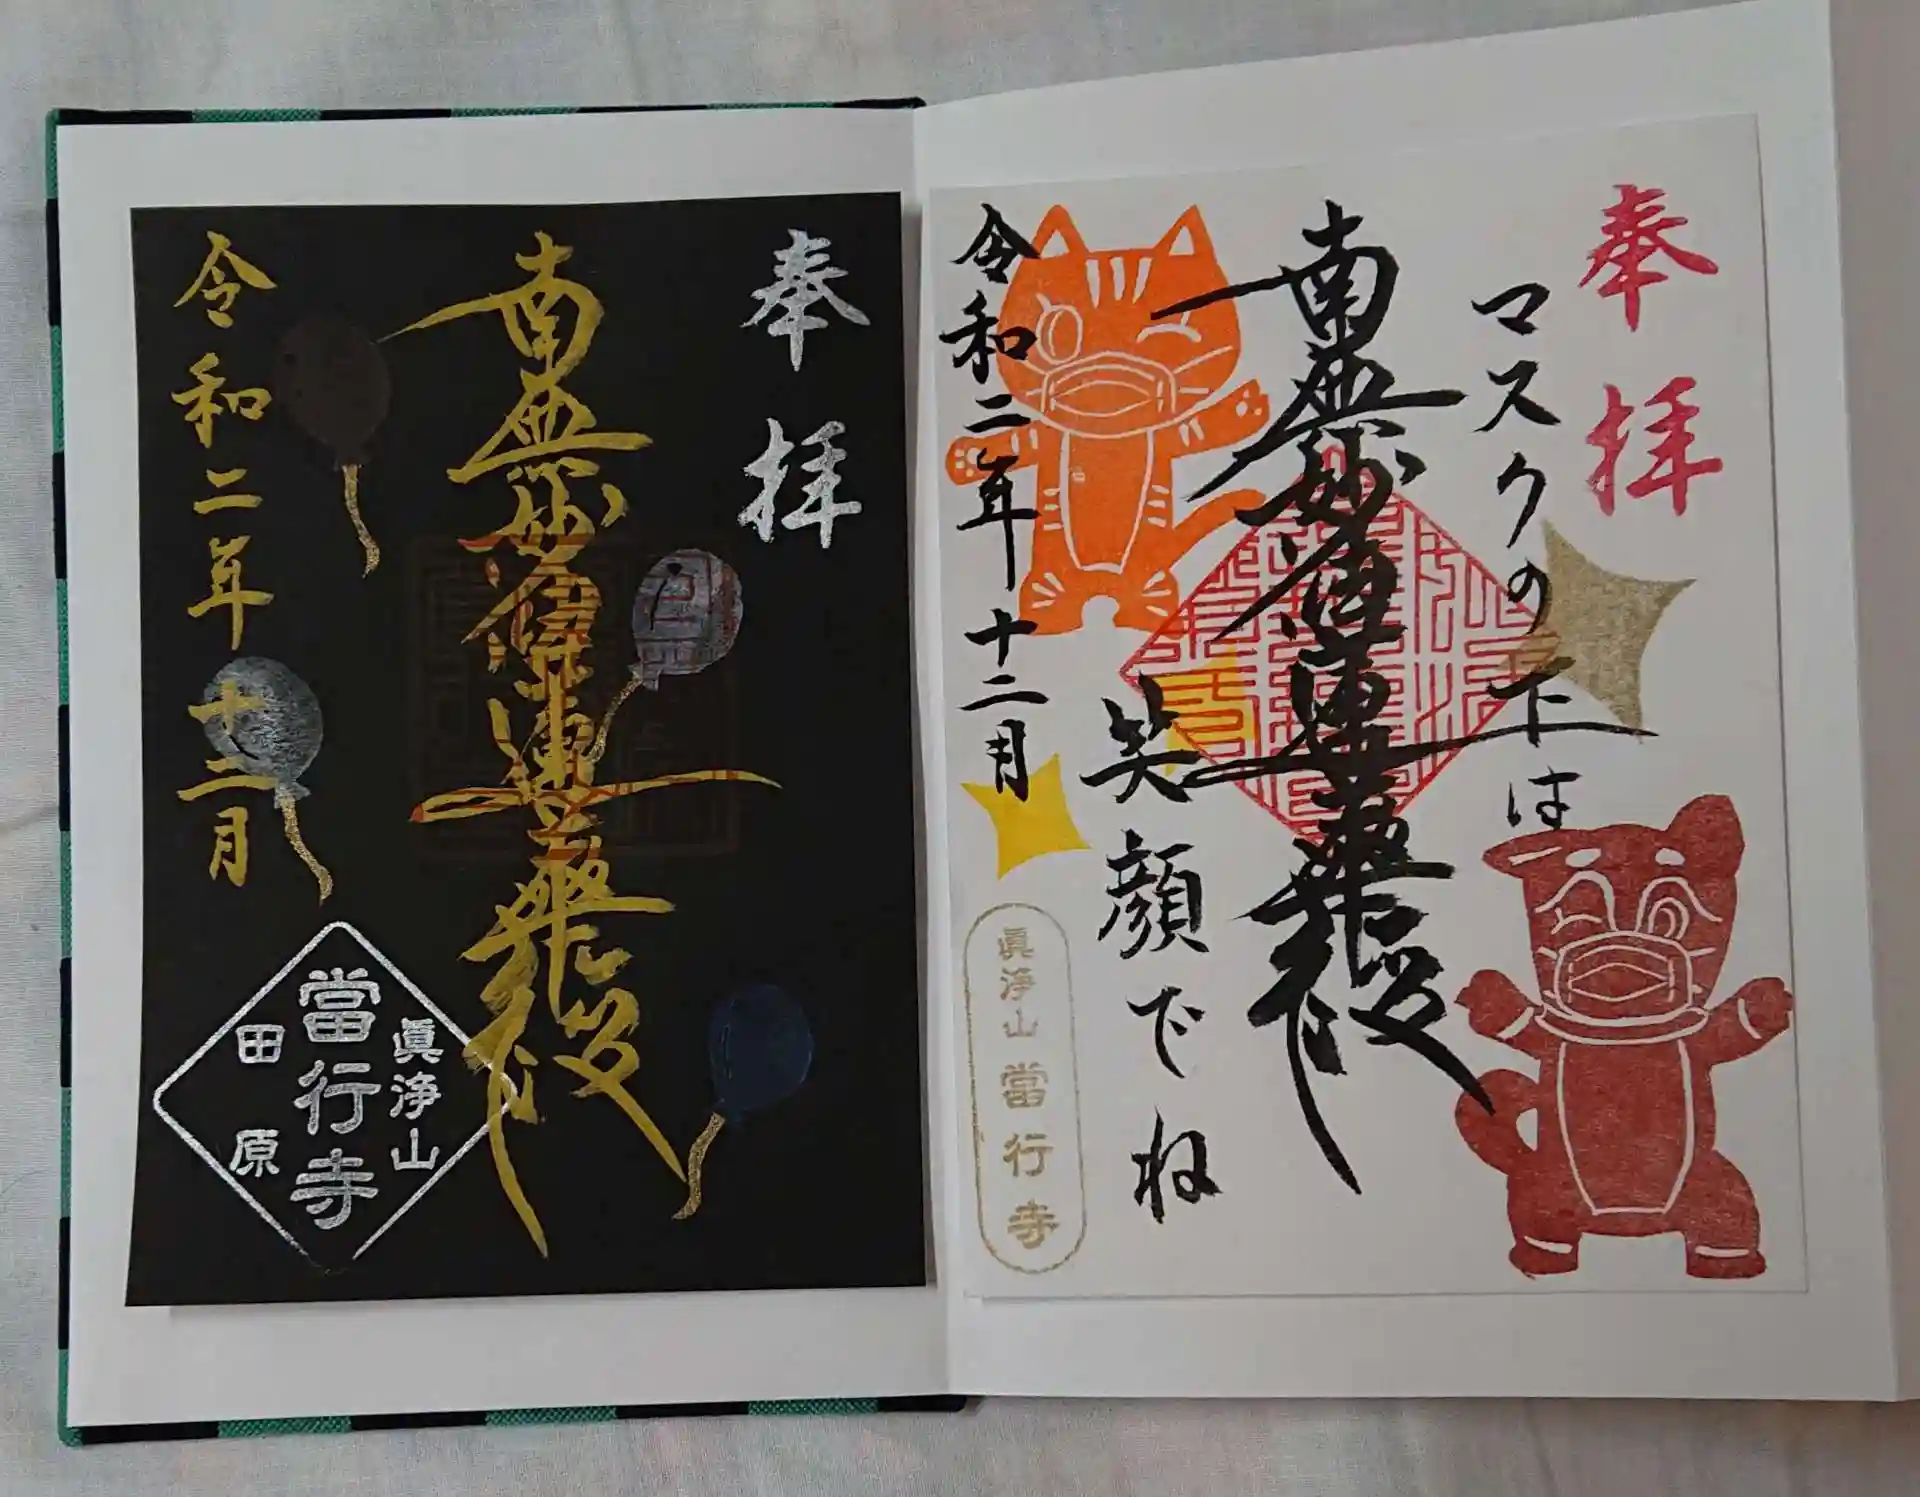 奉拝
マスクの下は
南無妙法蓮華経
笑顔でね
令和二年十二月
眞浄山 當行寺
奉拝
南無妙法蓮華経
令和二年十二月
眞浄山
當行寺
田原